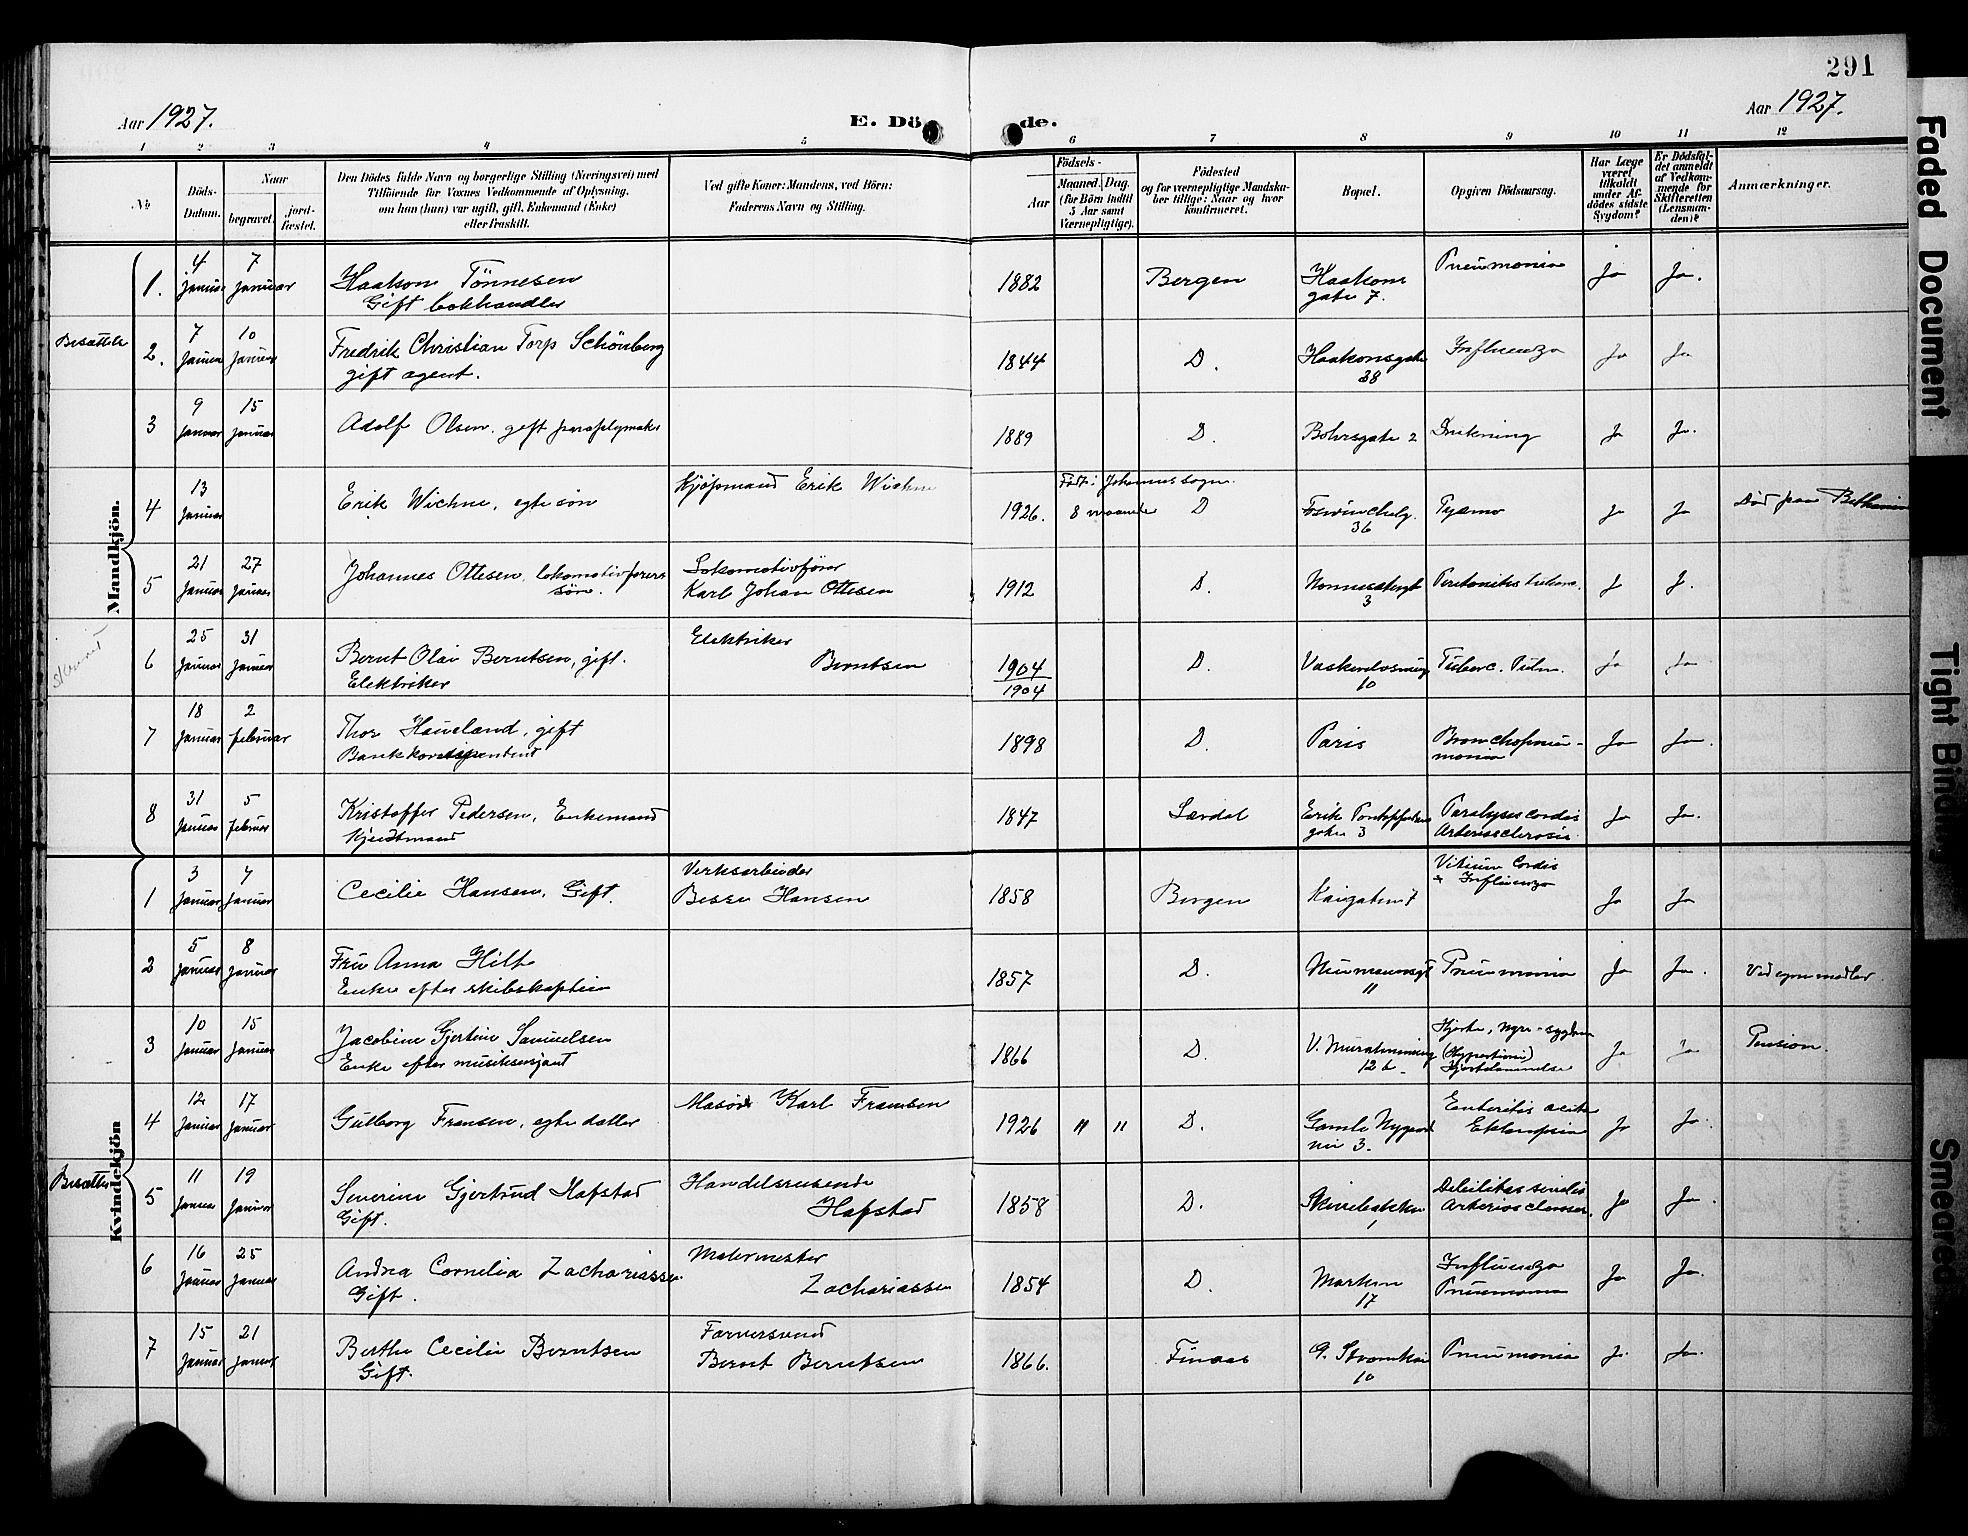 291
Aar 1927.
E. Döde.
Aar 1927.
1 2 3 4 5 6 7 8 9 10 11 12
No
Döds-Datum.
Naar
begravet.
jordfæstet.
Den Dödes fulde Navn og borgerlige Stilling (Næringsvei) med
Tilföiende for Voxnes Vedkommende af Oplysning,
om han (hun) var ugift, gift, Enkemand (Enke)
eller fraskilt.
Ved gifte Koner: Mandens, ved Börn:
Faderens Navn og Stilling.
Födsels-
Aar
Maaned. Dag.
(for Börn indtil
5 Aar samt
Værnepligtige).
Födested
og for værnepligtige Mandskaber
tillige: Naar og hvor
konfirmeret.
Bopæl.
Opgiven Dödsaarsag.
Har Læge
været
tilkaldt
under Afdödes
sidste
Sygdom?
Er Dödsfaldet
anmeldt
af Vedkommende
for
Skifteretten
(Lensmanden)?
Anmærkninger.
Mandkjön.
1. 4 Januar 7 Januar Haakon Tönnesen
Gift bokhandler
1882 Bergen Haakons
gate 7. Pneumonia Ja Ja.
2. 7 Januar 10 Januar Fredrik Christian Torp Schönberg
gift agent.
1844 D. Haakonsgate
38 Influenza Ja Ja
3 9 Januar 15 Januar Adolf Olsen, gift paraplymaker
1889 D. Bohrsgate 2 Drukning Ja Ja.
4 13 Januar Erik Wichne, egte sön
Kjöpmand Erik Wichne
Födt i Johannes sogn.
1926. 8 maaneder D
36 Ja Ja Död paa Bethanien
5 21 Januar 27 Januar Johannes Ottesen, lokomotivförers
sön.
Lokomotivförer
Karl Johan Ottesen
1912 D.
3 Ja Ja.
6 25 Januar 31 Januar Bernt Olai Berntsen, gift.
Elektriker
Elektriker
Berntsen
1904
1904 D.
10 Tuberc. Pulm. Ja Ja
7 18 Januar 2 februar Thor Haveland, gift
Bankkorrespondent
1898 D. Paris Bronchopneu-
monia Ja Ja.
8 31 Januar 5 februar Kristoffer Pedersen, Enkemand
1847 Lærdal Erik Pontoppidans
gate 3 Paralysis cordis
Arteriosclerosis. Ja Ja.
Kvindekjön
1 3 Januar 7 Januar Cecilie Hansen, Gift.
Verksarbeider
Besse Hansen
1858 Bergen Kaigaten 7 Vitium Cordis
+ Influenza Ja Ja
2 5 Januar 8 Januar Fru Anna Hilt
Enke efter skibskaptein
1857 D. Neumannsgt
11 Pneumonia Ja Ja. Ved egne midler.
3 10 Januar 15 Januar Jacobine Gjertine Samuelsen
Enke efter musiksersjant
1866 D. V. Muralmenning
12 b. Hjerte, nyre-sygdom
(Hypertioni) Ja Ja Pension.
4 12 Januar 17 Januar Gulborg Fransen, egte datter
Karl Fransen
1926 " " D. Gamle Nygaards
vei 3. Enteritis acuta
Eklampsia Ja Ja.
5 11 Januar 19 Januar Severine Gjertrud Hafstad
Gift.
Handelsreisende
Hafstad
1858 D. Skivebakken
1 Debilitas senilis
Arteriosclerosis. Ja Ja.
6 16 Januar 25 Januar Andrea Cornelia Zachariassen
Gift.
Malermester
Zachariassen
1854 D. Marken
17 Influenza
Pneumonia Ja Ja.
7 15 Januar 21 Januar Berthe Cecilie Berntsen
Gift.
Farversvend
Bernt Berntsen
1866. Finaas
10 Pneumonia Ja. Ja.
Faded Document
Tight Binding
Smeared